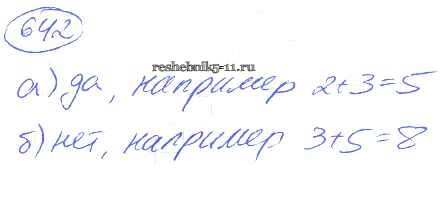 642
reshebnik5-11.ru
а) да, например 2+3=5
б) нет, например 3+5=8